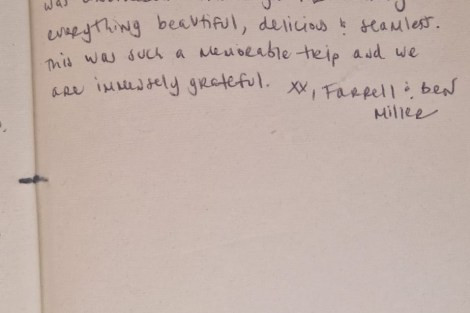 was
everything beautiful, delicious & seamless.
This was such a memorable trip and we
are immensely grateful. XX, Farrell & Ben
Miller